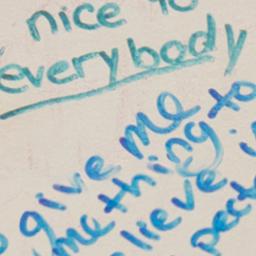 nice to
everybody
give me
me thing to
lieve i
pect